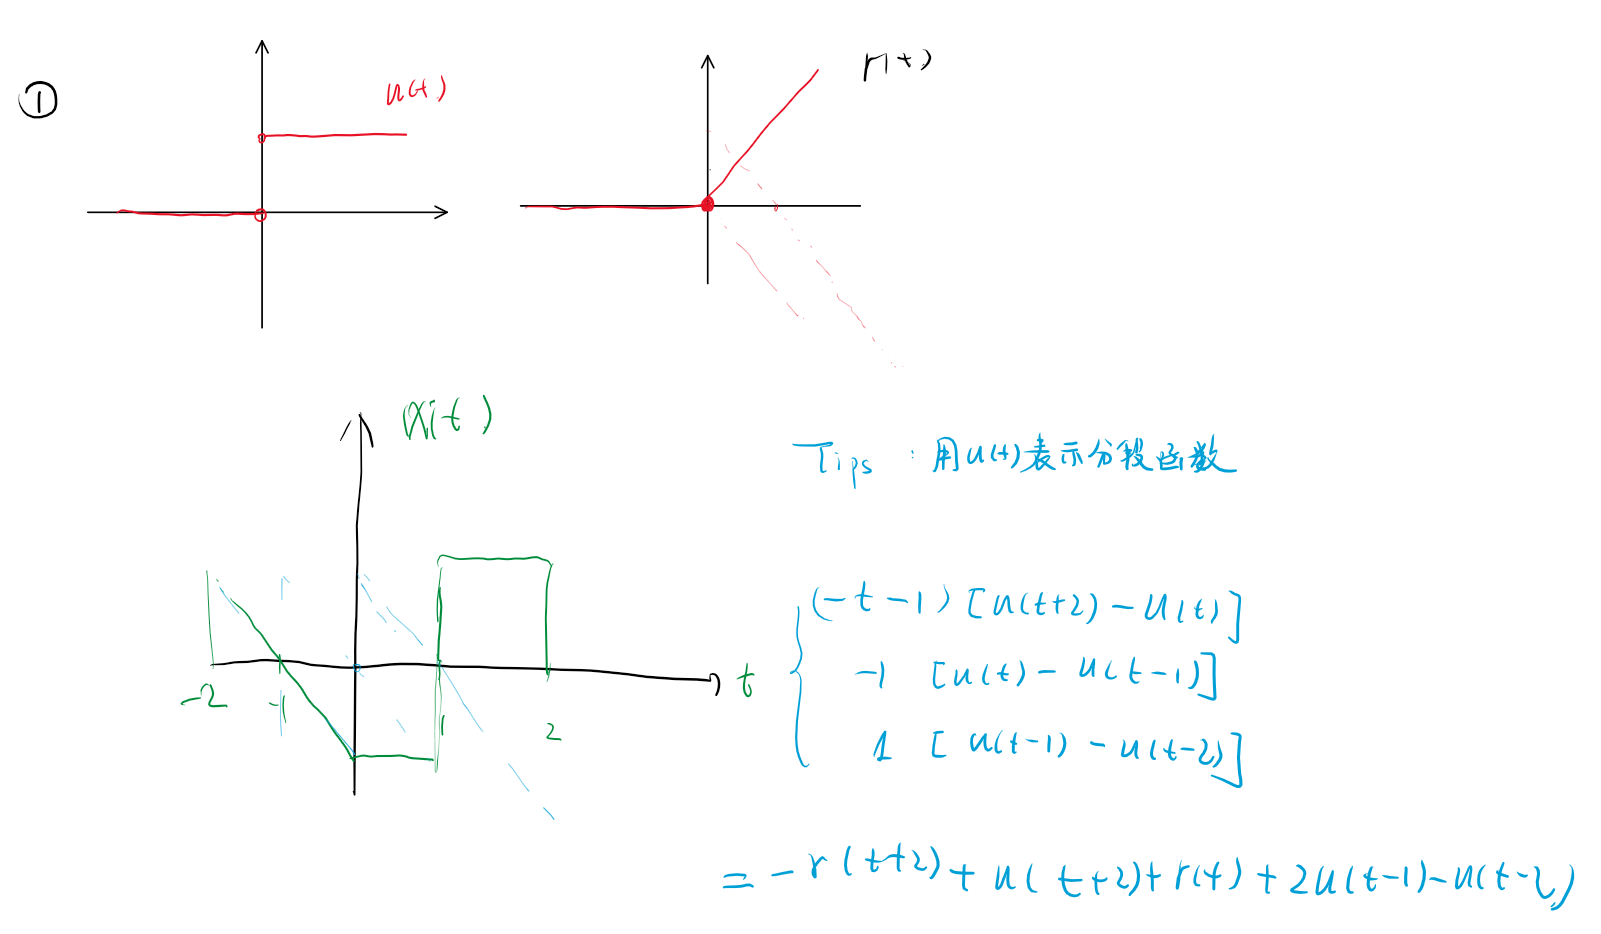 ①
u(t)
r(t)
x(t)
Tips : 用u(t)表示分段函数
-2 -1 1 2 t
(-t-1) [u(t+2) - u(t)]
-1 [u(t) - u(t-1)]
1 [u(t-1) - u(t-2)]
= -r(t+2) + u(t+2) + r(t) + 2u(t-1) - u(t-2)